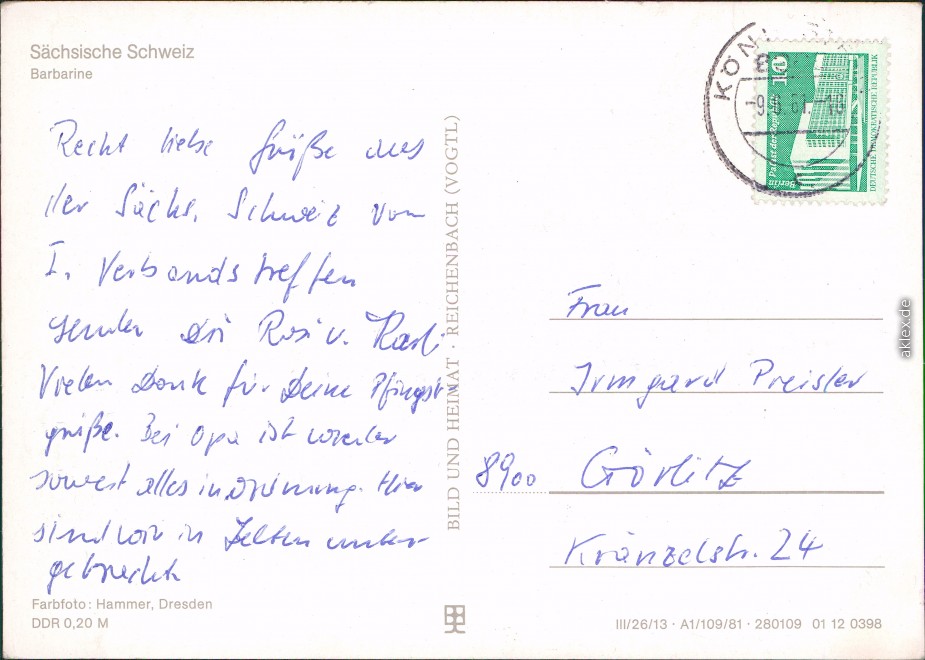 Sächsische Schweiz
Barbarine
Recht liebe Grüße aus
der Sächs. Schweiz vom
I. Verbandstreffen
senden Dir Rosi u. Karli.
Vielen Dank für Deine Pfingst-
grüße. Bei Opa ist wieder
soweit alles in Ordnung. Hier
sind wir in Zelten unter-
gebracht.
Farbfoto: Hammer, Dresden
DDR 0,20 M
BILD UND HEIMAT · REICHENBACH (VOGTL)
KÖN
10
Berlin
DEUTSCHE DEMOKRATISCHE REPUBLIK
Frau
Irmgard Preisler
8900 Görlitz
Kränzelstr. 24
III/26/13 · A1/109/81 · 280109 01 12 0398
aklex.de